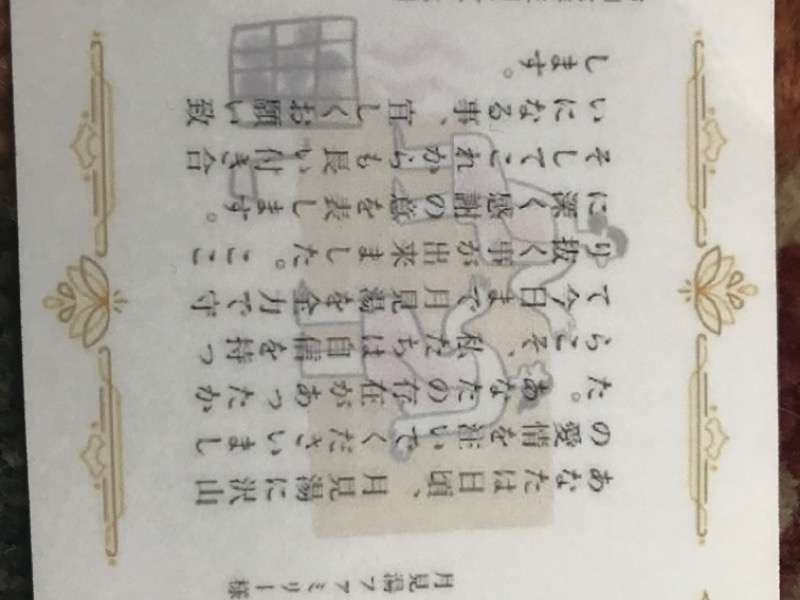 月見湯ファミリー様
あなたは日頃、月見湯に沢山
の愛情を注いでくださいまし
た。あなたの存在があったか
らこそ、私たちは自信を持っ
て今日まで月見湯を全力で守
り抜く事が出来ました。ここ
に深く感謝の意を表します。
そしてこれからも長い付き合
いになる事、宜しくお願い致
します。